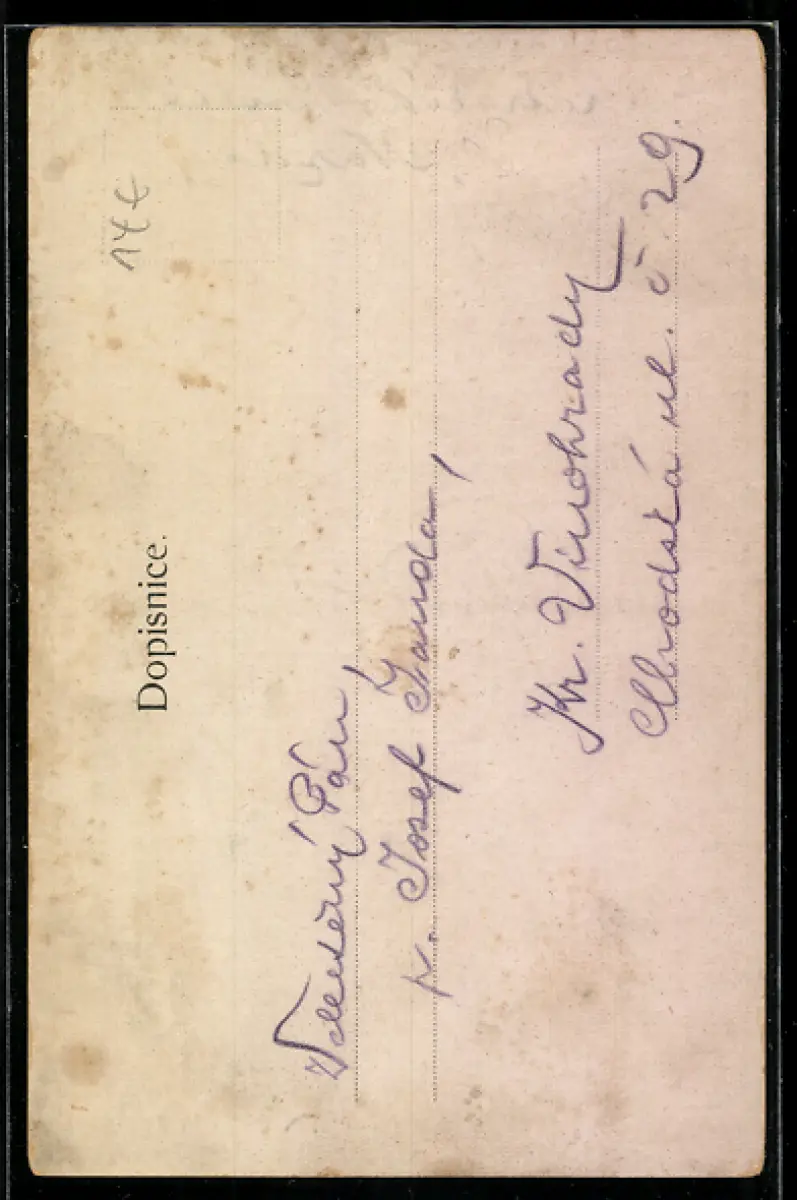 14 €
Dopisnice.
Velectěný Pán,
p. Josef Janda,
Kr. Vinohrady
ul. č. 29.